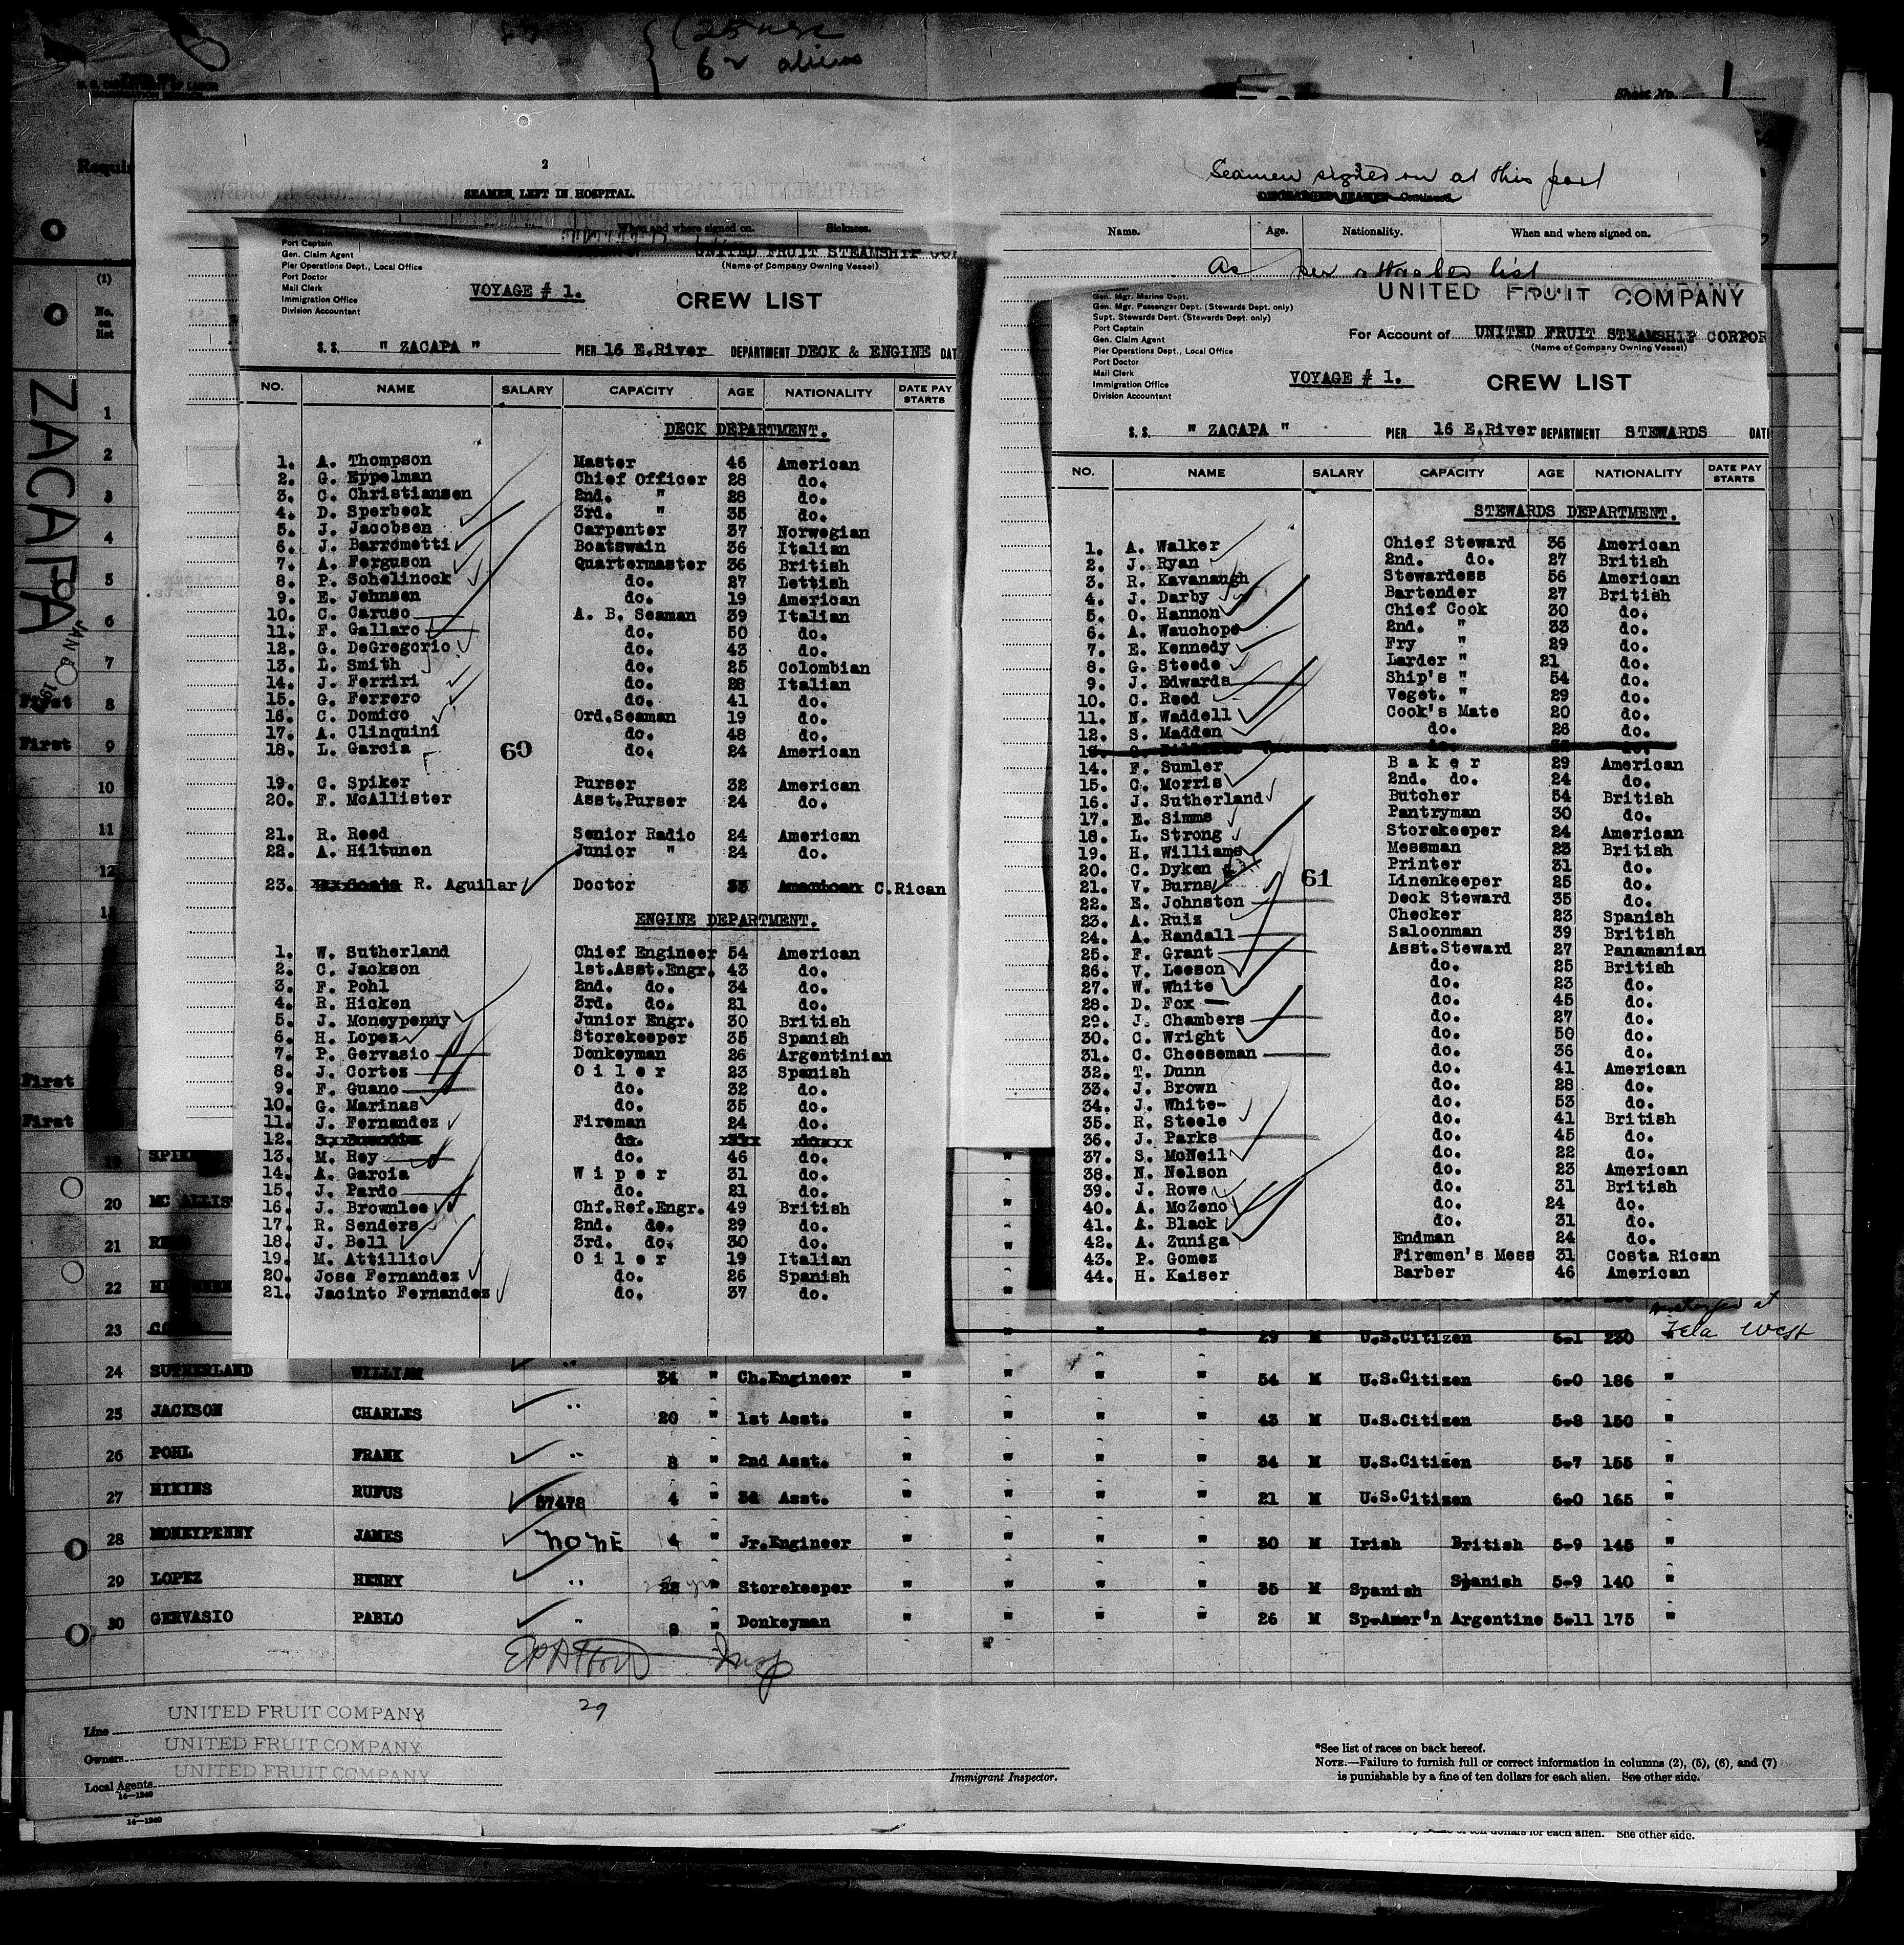 25 usc
6 aliens
Sheet No. 1
Requir
ZACAPA
(1)
No.
on
list
1
2
3
4
5
6
7
First 8
First 9
10
11
12
13
First
First
2
SEAMEN LEFT IN HOSPITAL.
When and where signed on. Sickness.
Port Captain
Gen. Claim Agent
Pier Operations Dept., Local Office
Port Doctor
Mail Clerk
Immigration Office
Division Accountant
UNITED FRUIT STEAMSHIP
(Name of Company Owning Vessel)
VOYAGE # 1. CREW LIST
S.S. " ZACAPA " PIER 16 E.River DEPARTMENT DECK & ENGINE DAT
NO. NAME SALARY CAPACITY AGE NATIONALITY DATE PAY STARTS
DECK DEPARTMENT.
1. A. Thompson Master 46 American
2. G. Eppelman Chief Officer 28 do.
3. C. Christiansen 2nd. " 28 do.
4. D. Sperbeck 3rd. " 35 do.
5. J. Jacobsen Carpenter 37 Norwegian
6. J. Barrometti Boatswain 36 Italian
7. A. Ferguson Quartermaster 36 British
8. P. Schelinock do. 27 Lettish
9. E. Johnsen do. 19 American
10. C. Caruso A. B. Seaman 39 Italian
11. F. Gallaro do. 50 do.
12. G. DeGregorio do. 43 do.
13. L. Smith do. 25 Colombian
14. J. Ferriri do. 28 Italian
15. G. Ferrero do. 41 do.
16. C. Domico Ord.Seaman 19 do.
17. A. Clinquini do. 48 do.
18. L. Garcia do. 24 American
60
19. C. Spiker Purser 32 American
20. F. McAllister Asst.Purser 24 do.
21. R. Reed Senior Radio 24 American
22. A. Hiltunen Junior " 24 do.
23. R. Aguilar Doctor 33 American C.Rican
ENGINE DEPARTMENT.
1. W. Sutherland Chief Engineer 54 American
2. C. Jackson 1st.Asst.Engr. 43 do.
3. F. Pohl 2nd. do. 34 do.
4. R. Hicken 3rd. do. 21 do.
5. J. Moneypenny Junior Engr. 30 British
6. H. Lopez Storekeeper 35 Spanish
7. P. Gervasio Donkeyman 26 Argentinian
8. J. Cortez O i l e r 23 Spanish
9. F. Guano do. 32 do.
10. G. Marinas do. 35 do.
11. J. Fernandez Fireman 24 do.
12. do.
13. M. Rey do. 46 do.
14. A. Garcia W i p e r 31 do.
15. J. Pardo do. 21 do.
16. J. Brownlee Chf.Ref.Engr. 49 British
17. R. Senders 2nd. do. 29 do.
18. J. Bell 3rd. do. 30 do.
19. M. Attillio O i l e r 19 Italian
20. Jose Fernandez do. 26 Spanish
21. Jacinto Fernandez do. 37 do.
3
Seamen signed on at this port
DISCHARGED SEAMEN—Continued
Name. Age. Nationality. When and where signed on.
As per attached list
UNITED FRUIT COMPANY
Gen. Mgr. Marine Dept.
Gen. Mgr. Passenger Dept. (Stewards Dept. only)
Supt. Stewards Dept. (Stewards Dept. only)
Port Captain
Gen. Claim Agent
Pier Operations Dept., Local Office
Port Doctor
Mail Clerk
Immigration Office
Division Accountant
For Account of UNITED FRUIT STEAMSHIP CORPOR
(Name of Company Owning Vessel)
VOYAGE # 1. CREW LIST
S.S. " ZACAPA " PIER 16 E.River DEPARTMENT STEWARDS DATE
NO. NAME SALARY CAPACITY AGE NATIONALITY DATE PAY STARTS
STEWARDS DEPARTMENT.
1. A. Walker Chief Steward 36 American
2. J. Ryan 2nd. do. 27 British
3. R. Kavanaugh Stewardess 56 American
4. J. Darby Bartender 27 British
5. O. Hannon Chief Cook 30 do.
6. A. Wauchope 2nd. " 33 do.
7. E. Kennedy Fry " 29 do.
8. G. Steede Larder " 21 do.
9. J. Edwards Ship's " 54 do.
10. C. Reed Veget. " 29 do.
11. N. Waddell Cook's Mate 20 do.
12. S. Madden do. 26 do.
13.
14. F. Sumler B a k e r 29 American
15. C. Morris 2nd. do. 24 do.
16. J. Sutherland Butcher 54 British
17. E. Simms Pantryman 30 do.
18. L. Strong Storekeeper 24 American
19. H. Williams Messman 23 British
20. C. Dyken Printer 31 do.
21. V. Burns Linenkeeper 25 do.
61
22. E. Johnston Deck Steward 35 do.
23. A. Ruiz Checker 23 Spanish
24. A. Randall Saloonman 39 British
25. F. Grant Asst.Steward 27 Panamanian
26. V. Leeson do. 25 British
27. W. White do. 23 do.
28. D. Fox do. 45 do.
29. J. Chambers do. 27 do.
30. C. Wright do. 50 do.
31. C. Cheeseman do. 36 do.
32. T. Dunn do. 41 American
33. J. Brown do. 28 do.
34. J. White- do. 53 do.
35. R. Steele do. 41 British
36. J. Parks do. 45 do.
37. S. McNeil do. 22 do.
38. N. Nelson do. 23 American
39. J. Rowe do. 31 British
40. A. McZeno do. 24 do.
41. A. Black do. 31 do.
42. A. Zuniga Endman 24 do.
43. P. Gomez Firemen's Mess 31 Costa Rican
44. H. Kaiser Barber 46 American
19 SPIK
20 MC ALLIS
21
22
23 29 M U.S.Citizen 6-1 230 Tela West
24 SUTHERLAND WILLIAM 34 " Ch.Engineer " " " 54 M U.S.Citizen 6-0 186 "
25 JACKSON CHARLES 20 " 1st Asst. " " " 43 M U.S.Citizen 5-8 150 "
26 POHL FRANK 8 " 2nd Asst. " " " 34 M U.S.Citizen 5-7 155 "
27 HIKINS RUFUS 37478 4 " 3d Asst. " " " 21 M U.S.Citizen 6-0 165 "
28 MONEYPENNY JAMES NONE 4 " Jr.Engineer " " " 30 M Irish British 5-9 145 "
29 LOPEZ HENRY 22 " Storekeeper " " " 35 M Spanish Spanish 5-9 140 "
30 GERVASIO PABLO 8 " Donkeyman " " " 26 M Sp-Amer'n Argentine 5-11 175 "
Insp
29
Line UNITED FRUIT COMPANY
Owners UNITED FRUIT COMPANY
Local Agents UNITED FRUIT COMPANY
14—1240
Immigrant Inspector.
*See list of races on back hereof.
NOTE.—Failure to furnish full or correct information in columns (2), (5), (6), and (7)
is punishable by a fine of ten dollars for each alien. See other side.
14—1240
dollars for each alien. See other side.